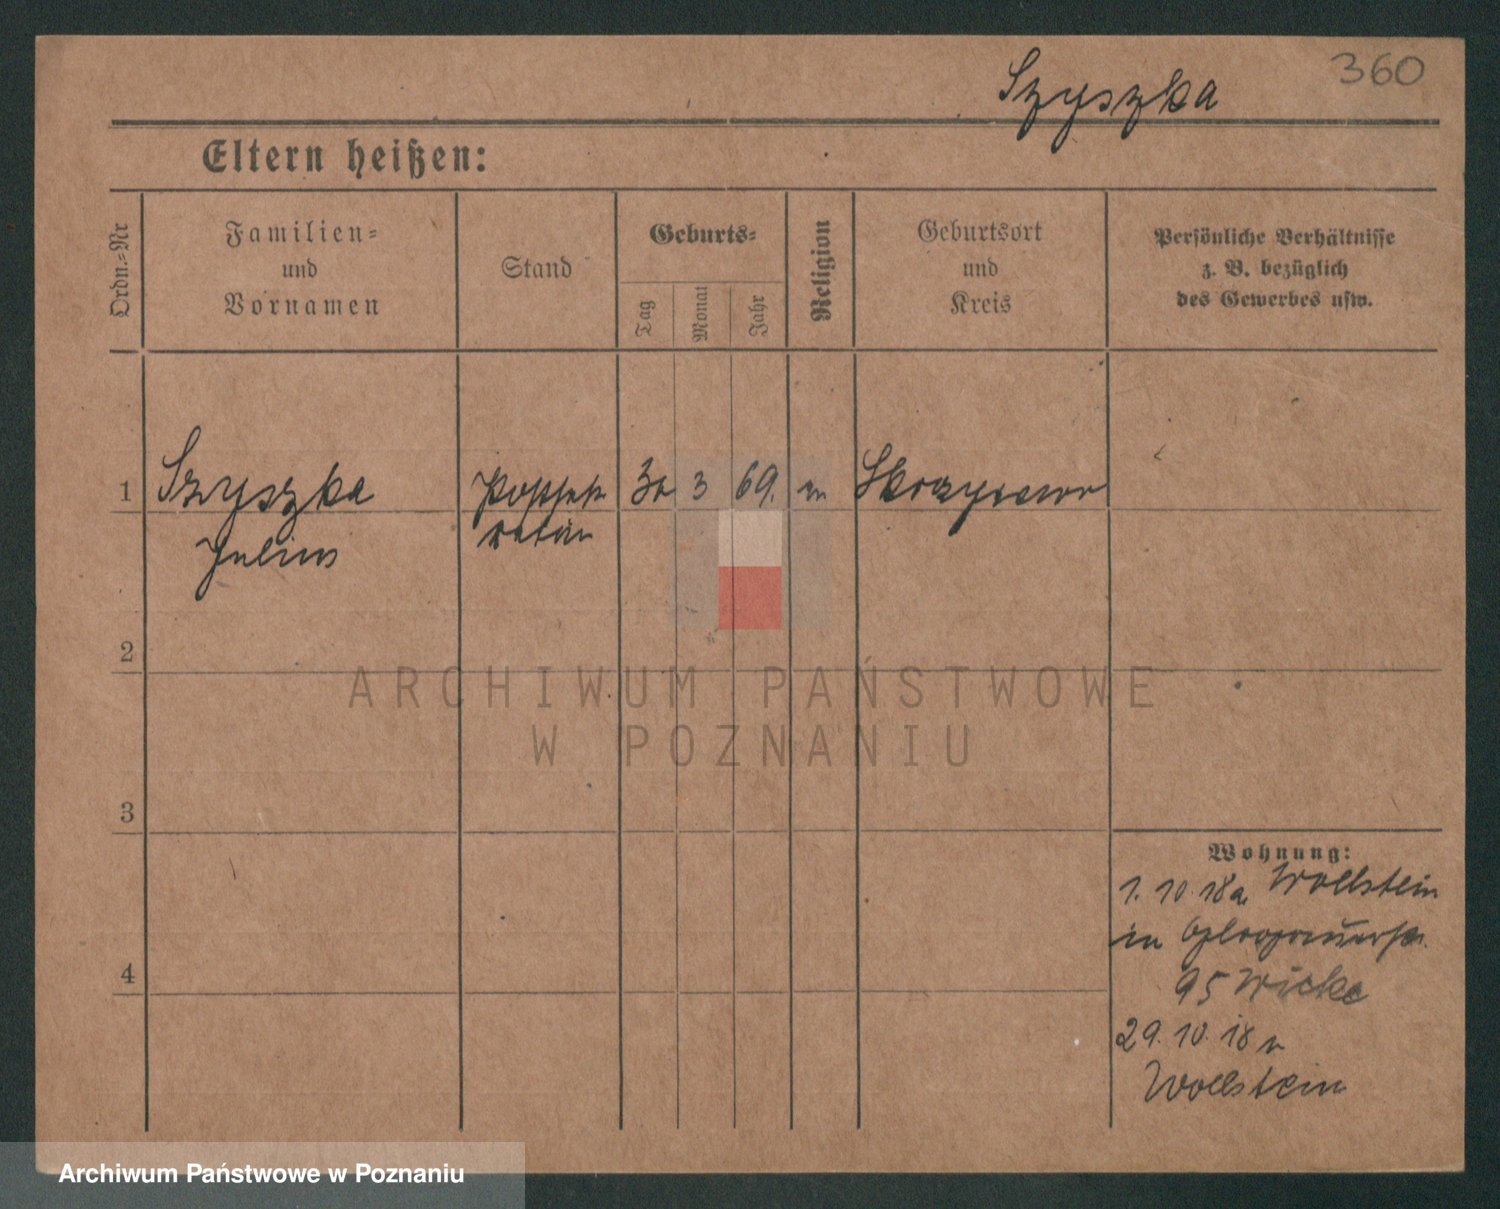 360
Szyszka
Eltern heißen:
Ordn.=Nr
Familien=
und
Vornamen
Stand
Geburts=
Tag
Monat
Jahr
Religion
Geburtsort
und
Kreis
Persönliche Verhältnisse
z. B. bezüglich
des Gewerbes usw.
1
Szyszka
Julius
Postsek
retär
3 69.
2
3
4
Wohnung:
1. 10. 18 Wollstein
in Glogauerstr.
95 Wicke
29. 10. 18
Wollstein
ARCHIWUM PAŃSTWOWE
W POZNANIU
Archiwum Państwowe w Poznaniu